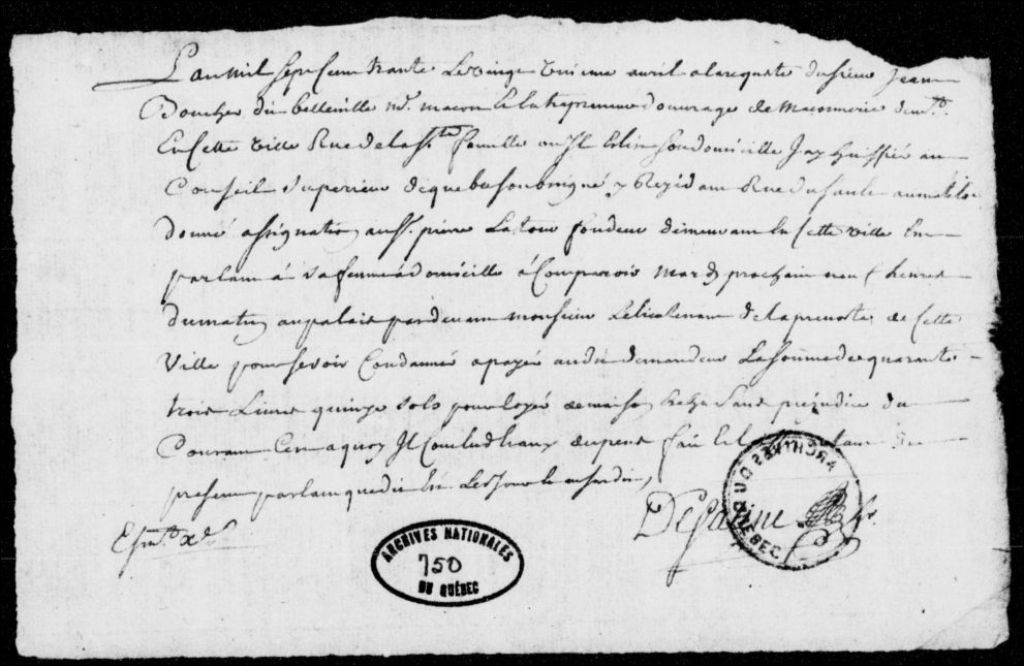 L'an mil sept cent trante le vingt troisieme avril a la requete du sieur Jean
Boucher dit belleville md. macon et Entrepreneur d'ouvrage de Maconnerie demt.
En cette ville Rue de la Ste famille ou Il Elit son domicille Jay huissier au
Conseil Superieur de quebec soubsigné y Residant Rue du sault au matelot
donné assignation au Sr. pierre Latour fondeur demeurant En cette ville En
parlant à sa femme a domicille à Comparoir Mardy prochain neuf heures
du matin au palais pardevant monsieur Le lieutenant de la prevosté de cette
Ville pour se voir Condamné a payer audit demandeur La somme de quarante
trois Livres quinze sols pour loyé de maison Sans prejudice du
Courant Ce a quoy Il Conclud depens fait Et
present parlant que dit Les Jour et an susdits
Desaline hr.
ARCHIVES DU QUEBEC
ARCHIVES NATIONALES
750
DU QUÉBEC